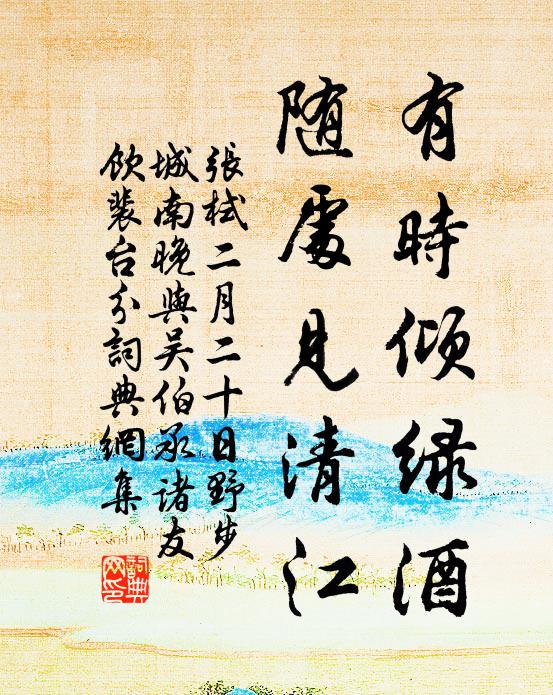 有時傾绿酒
随處見清江
張栻二月二十日野步
城南晚與吴伯承諸友
飲裴台分詞典網集
詞典网印